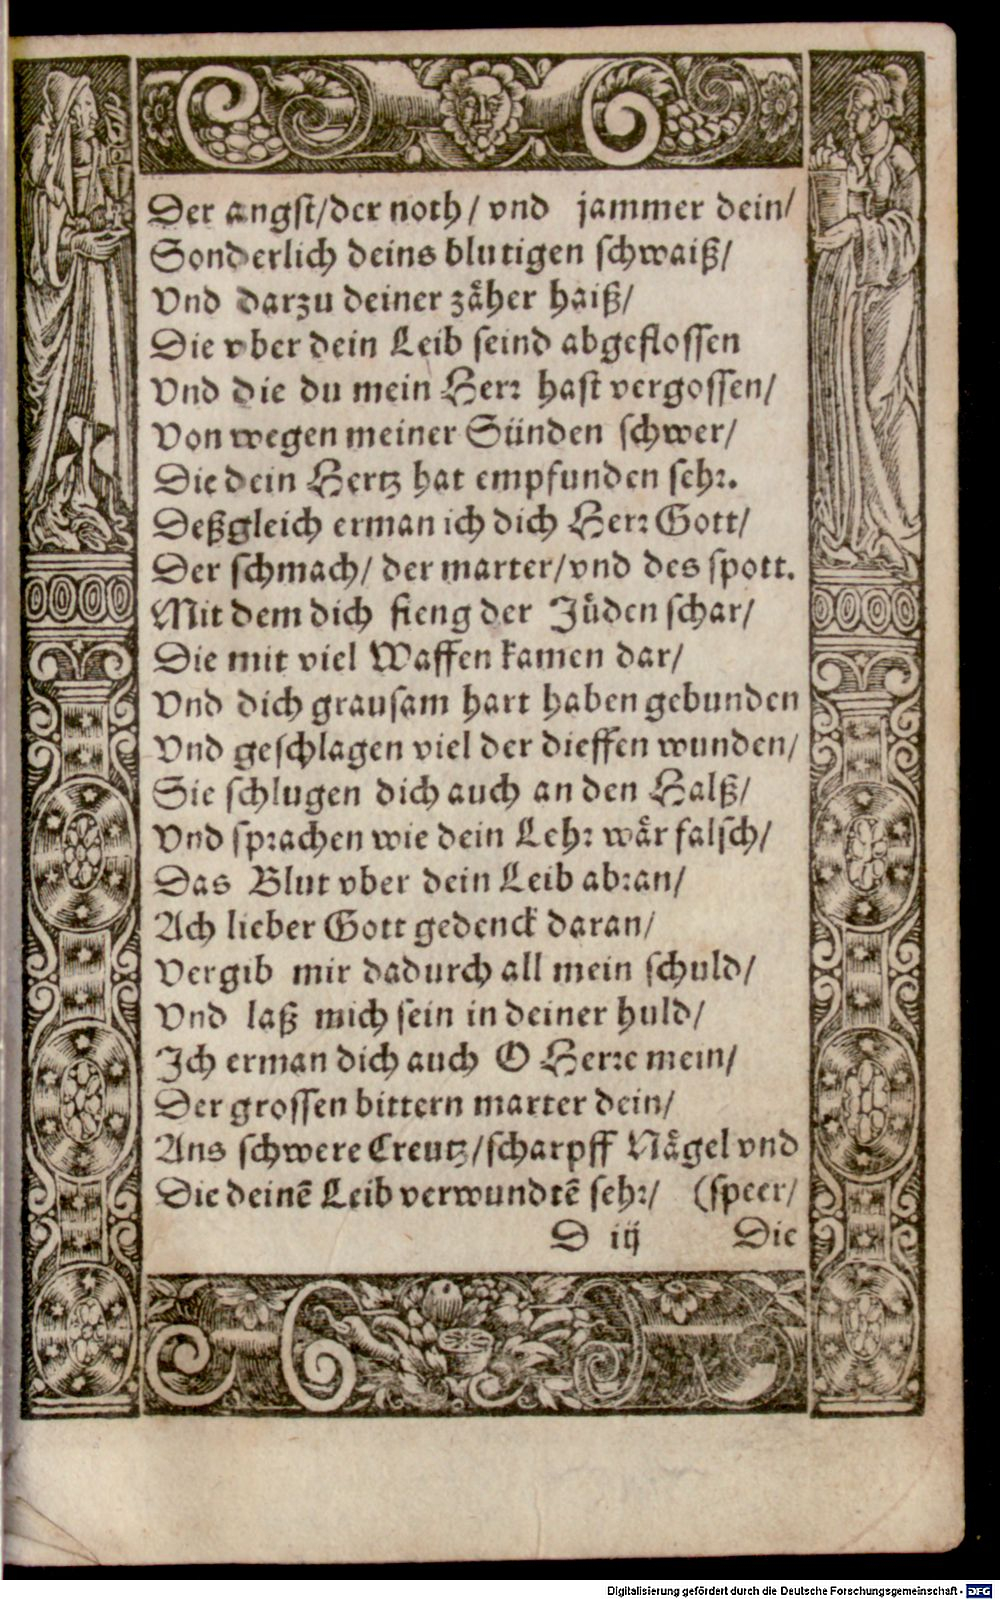 Der angst/der noth/ vnd jammer dein/
Sonderlich deins blutigen schwaiß/
Vnd darzu deiner zäher haiß/
Die vber dein Leib seind abgeflossen
Vnd die du mein Herr hast vergossen/
Von wegen meiner Sünden schwer/
Die dein Hertz hat empfunden sehr.
Deßgleich erman ich dich Herr Gott/
Der schmach/ der marter/vnd des spott.
Mit dem dich fieng der Jüden schar/
Die mit viel Waffen kamen dar/
Vnd dich grausam hart haben gebunden
Vnd geschlagen viel der dieffen wunden/
Sie schlugen dich auch an den Halß/
Vnd sprachen wie dein Lehr wär falsch/
Das Blut vber dein Leib abran/
Ach lieber Gott gedenck daran/
Vergib mir dadurch all mein schuld/
Vnd laß mich sein in deiner huld/
Ich erman dich auch O Herre mein/
Der grossen bittern marter dein/
Ans schwere Creutz/scharpff Nägel vnd
Die deinē Leib verwundtē sehr/ (speer/
D iij Die
Digitalisierung gefördert durch die Deutsche Forschungsgemeinschaft - DFG